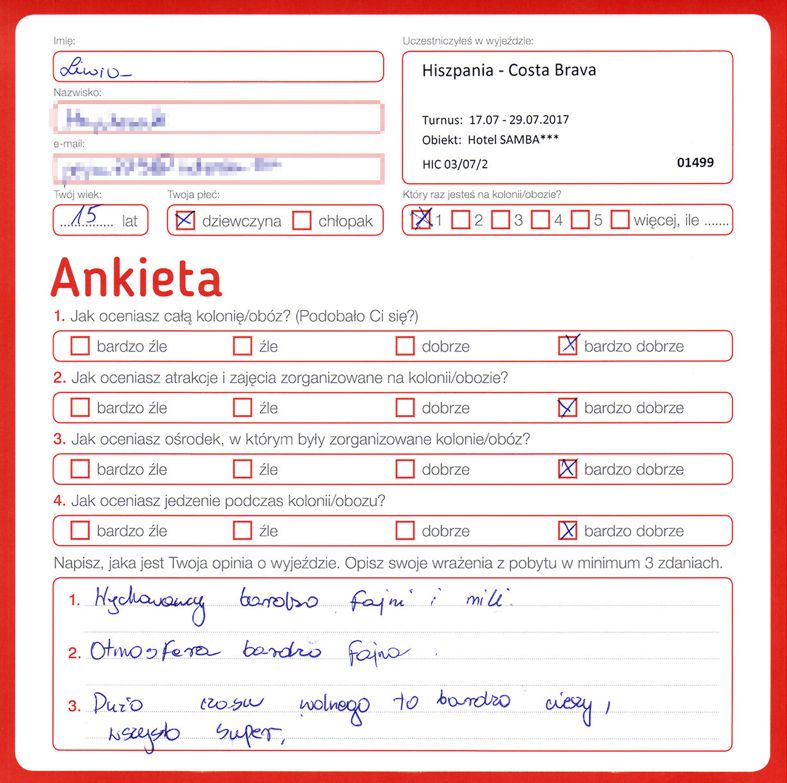 Imię:
Uczestniczyłeś w wyjeździe:
Liwia
Hiszpania - Costa Brava
Nazwisko:
Turnus: 17.07 - 29.07.2017
Obiekt: Hotel SAMBA***
e-mail:
HIC 03/07/2
01499
Twój wiek:
Twoja płeć:
Który raz jesteś na kolonii/obozie?
15 lat
dziewczyna chłopak
1 2 3 4 5 więcej, ile .......
Ankieta
1. Jak oceniasz całą kolonię/obóz? (Podobało Ci się?)
bardzo źle źle dobrze bardzo dobrze
2. Jak oceniasz atrakcje i zajęcia zorganizowane na kolonii/obozie?
bardzo źle źle dobrze bardzo dobrze
3. Jak oceniasz ośrodek, w którym były zorganizowane kolonie/obóz?
bardzo źle źle dobrze bardzo dobrze
4. Jak oceniasz jedzenie podczas kolonii/obozu?
bardzo źle źle dobrze bardzo dobrze
Napisz, jaka jest Twoja opinia o wyjeździe. Opisz swoje wrażenia z pobytu w minimum 3 zdaniach.
1. Wychowawcy bardzo fajni i mili.
2. Atmosfera bardzo fajna.
3. Dużo czasu wolnego to bardzo cieszy,
wszysto super.